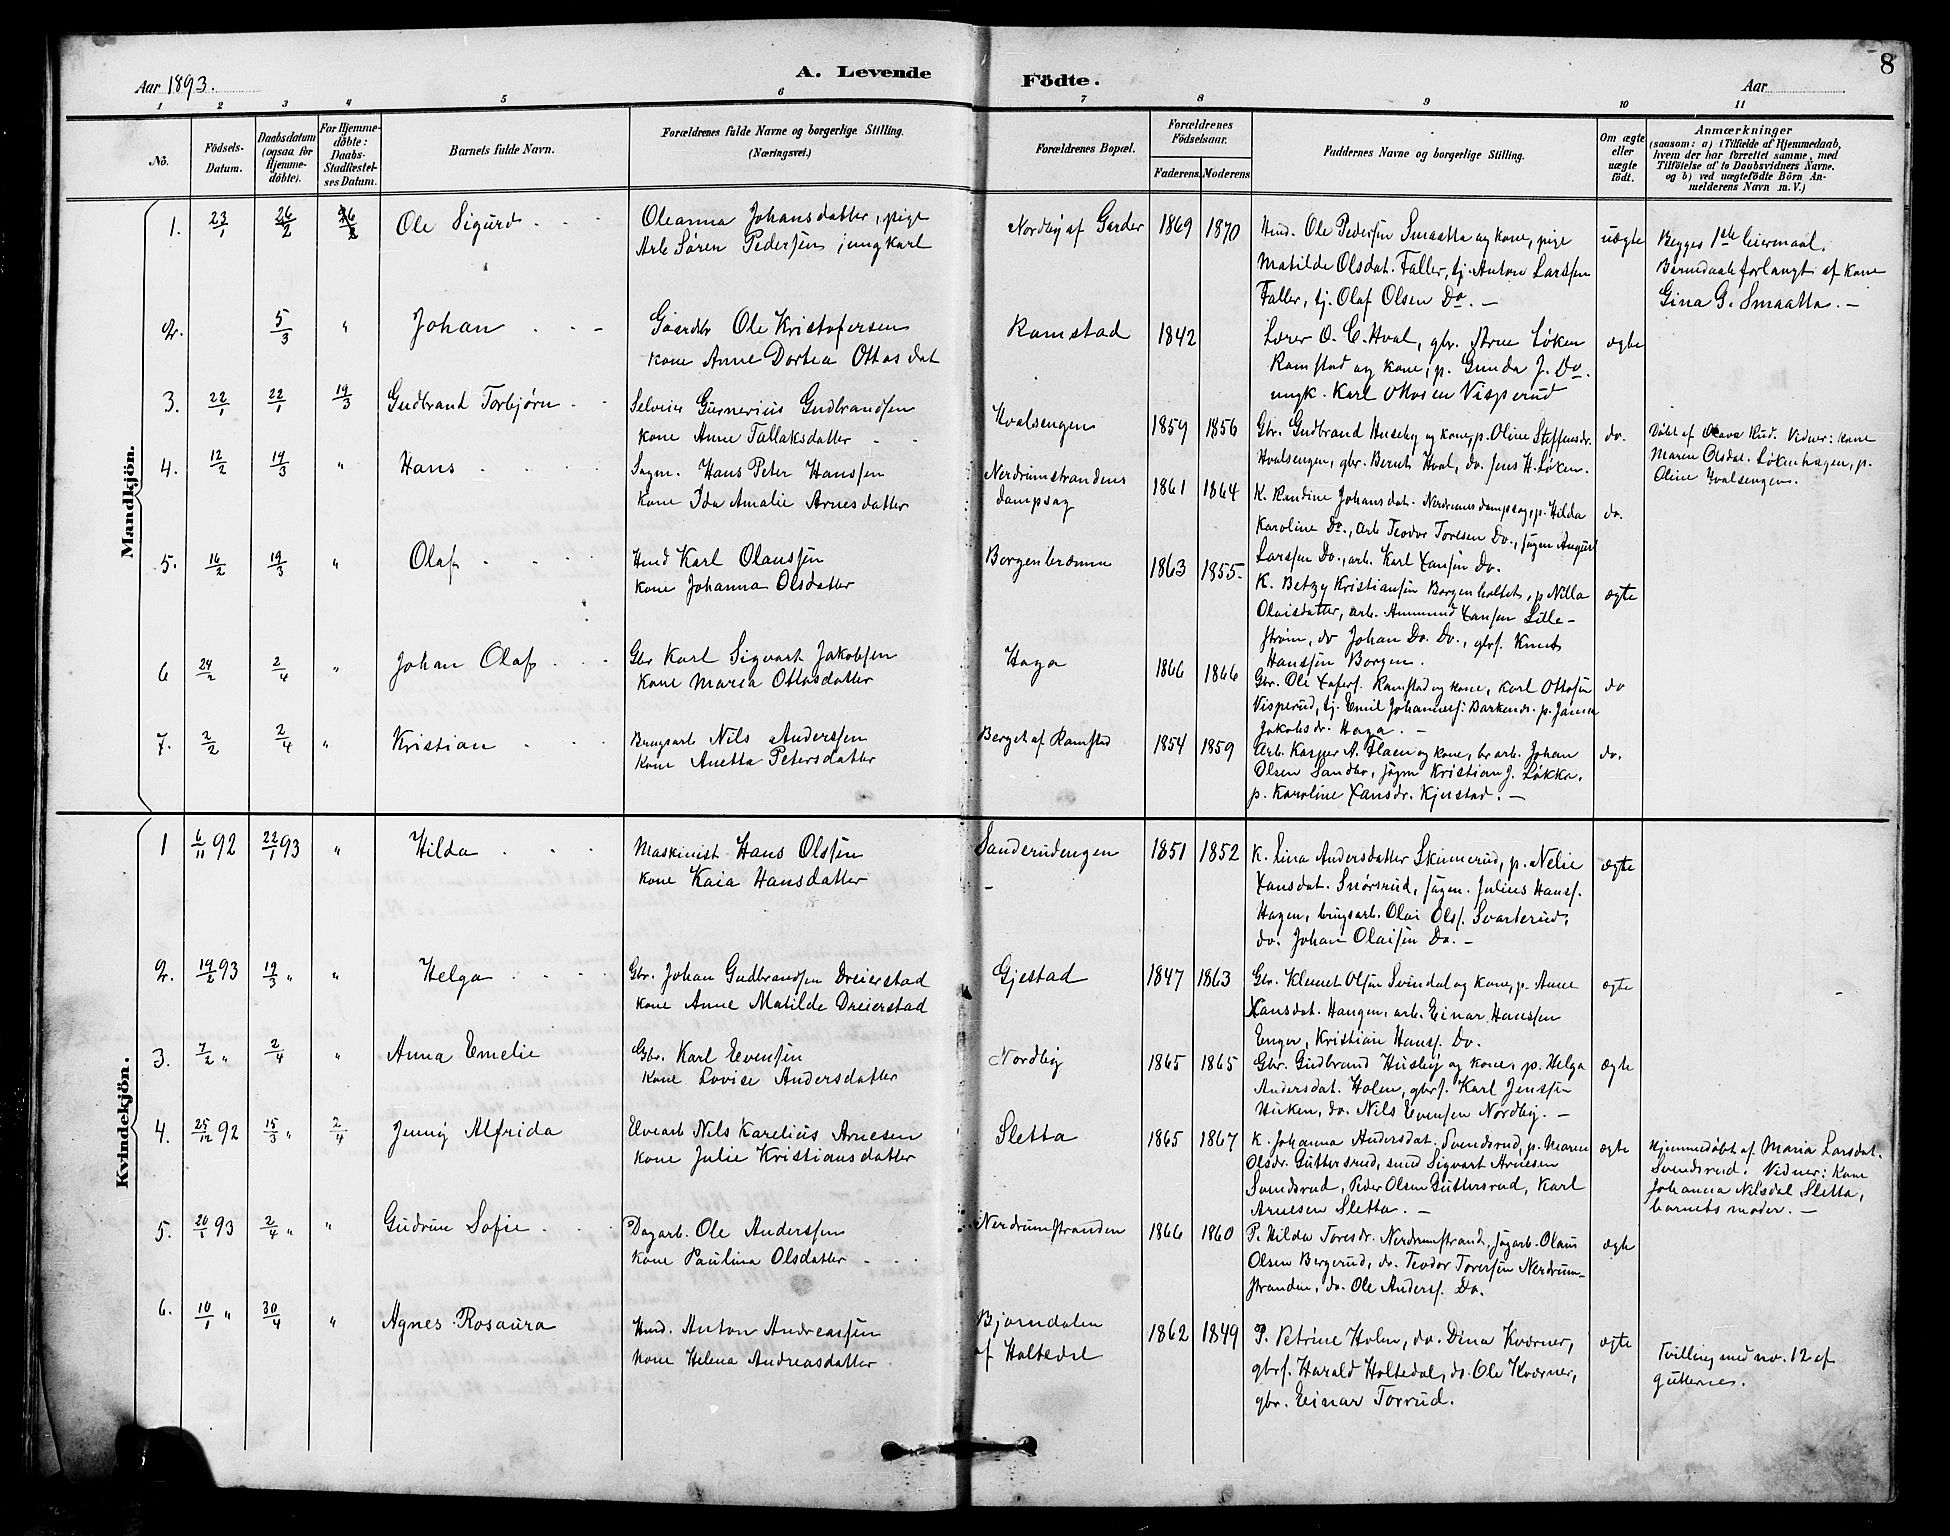 8
Aar 1893.
A. Levende
Födte.
Aar
1 2 3 4 5 6 7 8 9 10 11
No.
Födsels-Datum.
Daabsdatum (ogsaa for Hjemme-döbte).
For Hjemme-döbte: Daabs-Stadfestel-ses Datum.
Barnets fulde Navn.
Forældrenes fulde Navne og borgerlige Stilling. (Næringsvei.)
Forældrenes Bopæl.
Forældrenes Födselsaar.
Faderens. Moderens.
Faddernes Navne og borgerlige Stilling.
Om ægte eller uægte födt.
Anmærkninger
(saasom: a) i Tilfælde af Hjemmedaab,
hvem der har forrettet samme, med
Tilföielse af to Daabsvidners Navne.
og b) ved uægtefödte Börn An-
melderens Navn m. V.)
Mandkjön.
1. 23/1 26/2 26/2 Ole Sigurd
Oleanna Johansdatter, pige
Arb Søren Pedersen, ungkarl
Nordby af Garder 1869 1870
Husd. Ole Pedersen Smaatta og kone, pige
Matilde Olsdat. Faller, tj. Anton Larssen
Faller, tj. Olaf Olsen Do. —
uægte
Begges 1ste leiermaal.
Barnedaab forlangt af kone
Gina G. Smaatta. —
2. 5/3 " Johan
Gaardbr Ole Kristofersen
kone Anne Dortea Ottosdat
Ramstad 1842
Lærer O. C. Hval, gbr. Arne Løken
Ramstad og kone, p. Gunda J. Do.
ungk. Karl Ottosen Visperud
ægte
3. 22/1 22/1 19/3 Gudbrand Torbjørn
Selveier Gunerius Gudbrandsen
kone Anne Tallaksdatter
Hvalsengen 1859 1856
Gbr. Gudbrand Huseby og kone, p. Oline Steffensdr.
Hvalsengen, gbr. Bernt Hval, do. Jens H. Løken.
do.
Døbt af Olava Rud. Vidner: kone
Maren Olsdat. Løkenhagen, p.
Oline Hvalsengen.
4. 12/2 19/3 " Hans
Sagm. Hans Peter Hanssen
kone Ida Amalie Arnesdatter
Nerdrumstrandens
dampsag
1861 1864
K. Randine Johansdat. Nerdrums dampsag, p. Hilda
Karoline Do., arb Teodor Toresen Do., sagm August
Larssen Do., arb. Karl Xansen Do.
do.
5. 16/2 19/3 " Olaf
Husd Karl Olaussen
kone Johanna Olsdatter
Borgenbraanna 1863 1855
K. Betzy Kristiansen Borgenholtet, p Nilla
Olaisdatter, arb. Ammund Xansen Lille-
strøm, do Johan Do. Do., gbrs. Knut
Hanssen Borgen.
ægte
6 24/2 2/4 " Johan Olaf
Gbr Karl Sigvart Jakobsen
kone Maria Ottosdatter
Haga 1866 1866
Gbr. Ole Xofers. Ramstad og kone, Karl Ottosen
Visperud, tj. Emil Johanness. Barkenes. p. Janna
Jakobsdr. Haga. —
do
7. 2/2 2/4 " Kristian
Brugsarb Nils Anderssen
kone Anetta Petersdatter
Berget af Ramstad 1854 1859
Arb. Kasper A. Flaen og kone, br arb. Johan
Olsen Sandbo, sagm Kristian J. Løkka,
p. Karoline Xansdr. Kjustad. —
do.
Kvindekjön.
1 6/11 92 22/1 93 " Hilda
Maskinist Hans Olssen
kone Kaia Hansdatter
Sanderudengen 1851 1852
K. Lina Andersdatter Skinnerud, p. Nelie
Xansdat. Snørsrud, sagm. Julius Hanss.
Hagen, brugsarb. Olai Olss. Svarterud,
do. Johan Olaisen Do. —
ægte
2. 19/2 93 19/3 " " Helga
Gbr. Johan Gudbrandsen Dreierstad
kone Anne Matilde Dreierstad
Gjestad 1847 1863
Gbr. Klemet Olsen Svindal og kone, p. Anne
Xansdat. Haugen, arb. Einar Hanssen
Enger, Kristian Hanss. Do.
ægte
3. 7/2 " 2/4 " Anna Emelie
Gbr. Karl Evensen
kone Lovise Andersdatter
Nordby 1865 1865
Gbr. Gudbrand Huseby og kone, p. Helga
Andersdat. Holen, gbrs. Karl Jenssen
Hirken, do. Nils Evensen Nordby. —
ægte
4. 25/12 92 15/3 " 2/4 Jenny Alfrida
Elvearb Nils Karelius Arnesen
kone Julie Kristiansdatter
Sletta 1865 1867
K. Johanna Andersdat. Svendsrud, p. Maren
Olsdr. Guttersrud, smed Sigvart Arnesen
Svendsrud, Peder Olsen Guttersrud, Karl
Arnesen Sletta. —
ægte
Hjemmedøbt af Maria Larsdat.
Svendsrud. Vidner: kone
Johanna Nilsdat Sletta,
barnets moder. —
5. 20/1 93 2/4 " " Gudrun Sofie
Dagarb. Ole Anderssen
kone Paulina Olsdatter
Nerdrumstranden 1866 1860
P. Hilda Toresdr. Nerdrumstrand, sagarb. Olaus
Olsen Bergerud, do. Teodor Toressen Nerdrum-
stranden, do. Ole Anderss. Do.
ægte
6. 10/1 " 30/4 " Agnes Rosaura
Husd. Anton Andreassen
kone Helena Andreasdatter
Bjørndalen
af Holtedal
1862 1849
P. Petrine Holm, do. Dina Kværner,
gbrs. Harald Holtedal, do. Ole Kværner,
gbr. Einar Torrud.
ægte
Tvilling med no. 12 af
guttenes.